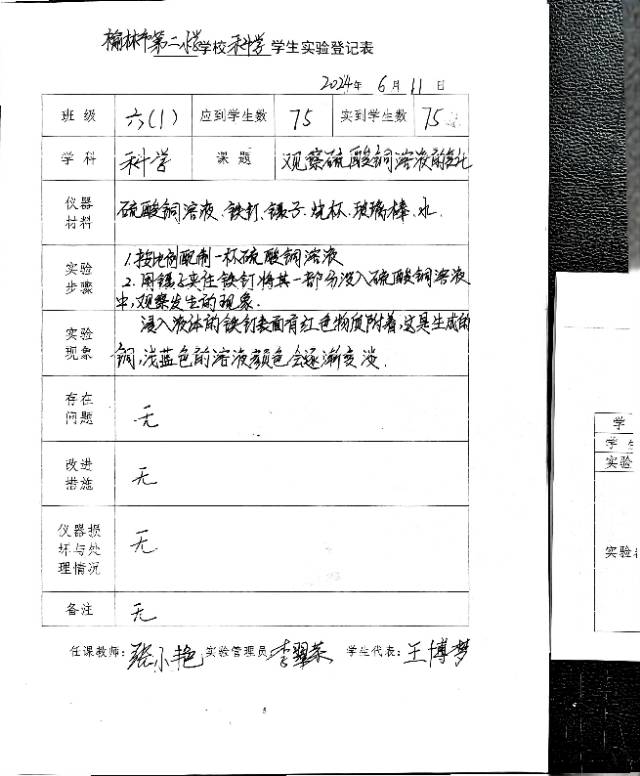 榆林市第二小学学校科学学生实验登记表
2024年6月11日
班级 六(1) 应到学生数 75 实到学生数 75
学科 科学 课题 观察硫酸铜溶液的变化
仪器材料 硫酸铜溶液、铁钉、镊子、烧杯、玻璃棒、水.
实验步骤 1.按比例配制一杯硫酸铜溶液
2.用镊子夹住铁钉将其一部分浸入硫酸铜溶液
中,观察发生的现象.
实验现象 浸入液体的铁钉表面有红色物质附着,这是生成的
铜,浅蓝色的溶液颜色会逐渐变淡.
存在问题 无
改进措施 无
仪器损坏与处理情况 无
备注 无
任课教师:张小艳 实验管理员:李翠荣 学生代表:王博梦
学
学生
实验
实验